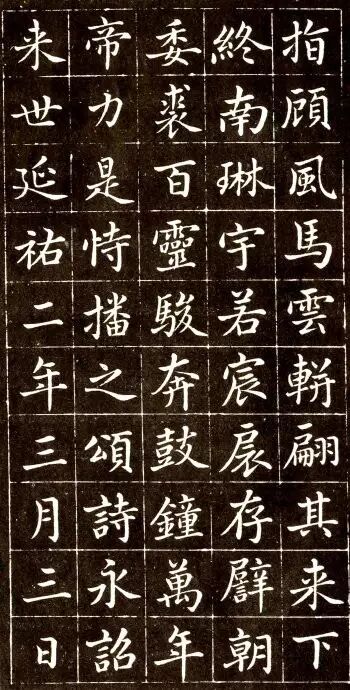 指顧風馬雲輧翩其来下
終南琳宇若宸扆存辟朝
委裘百靈駿奔鼓鐘萬年
帝力是恃播之頌詩永詔
来世延祐二年三月三日